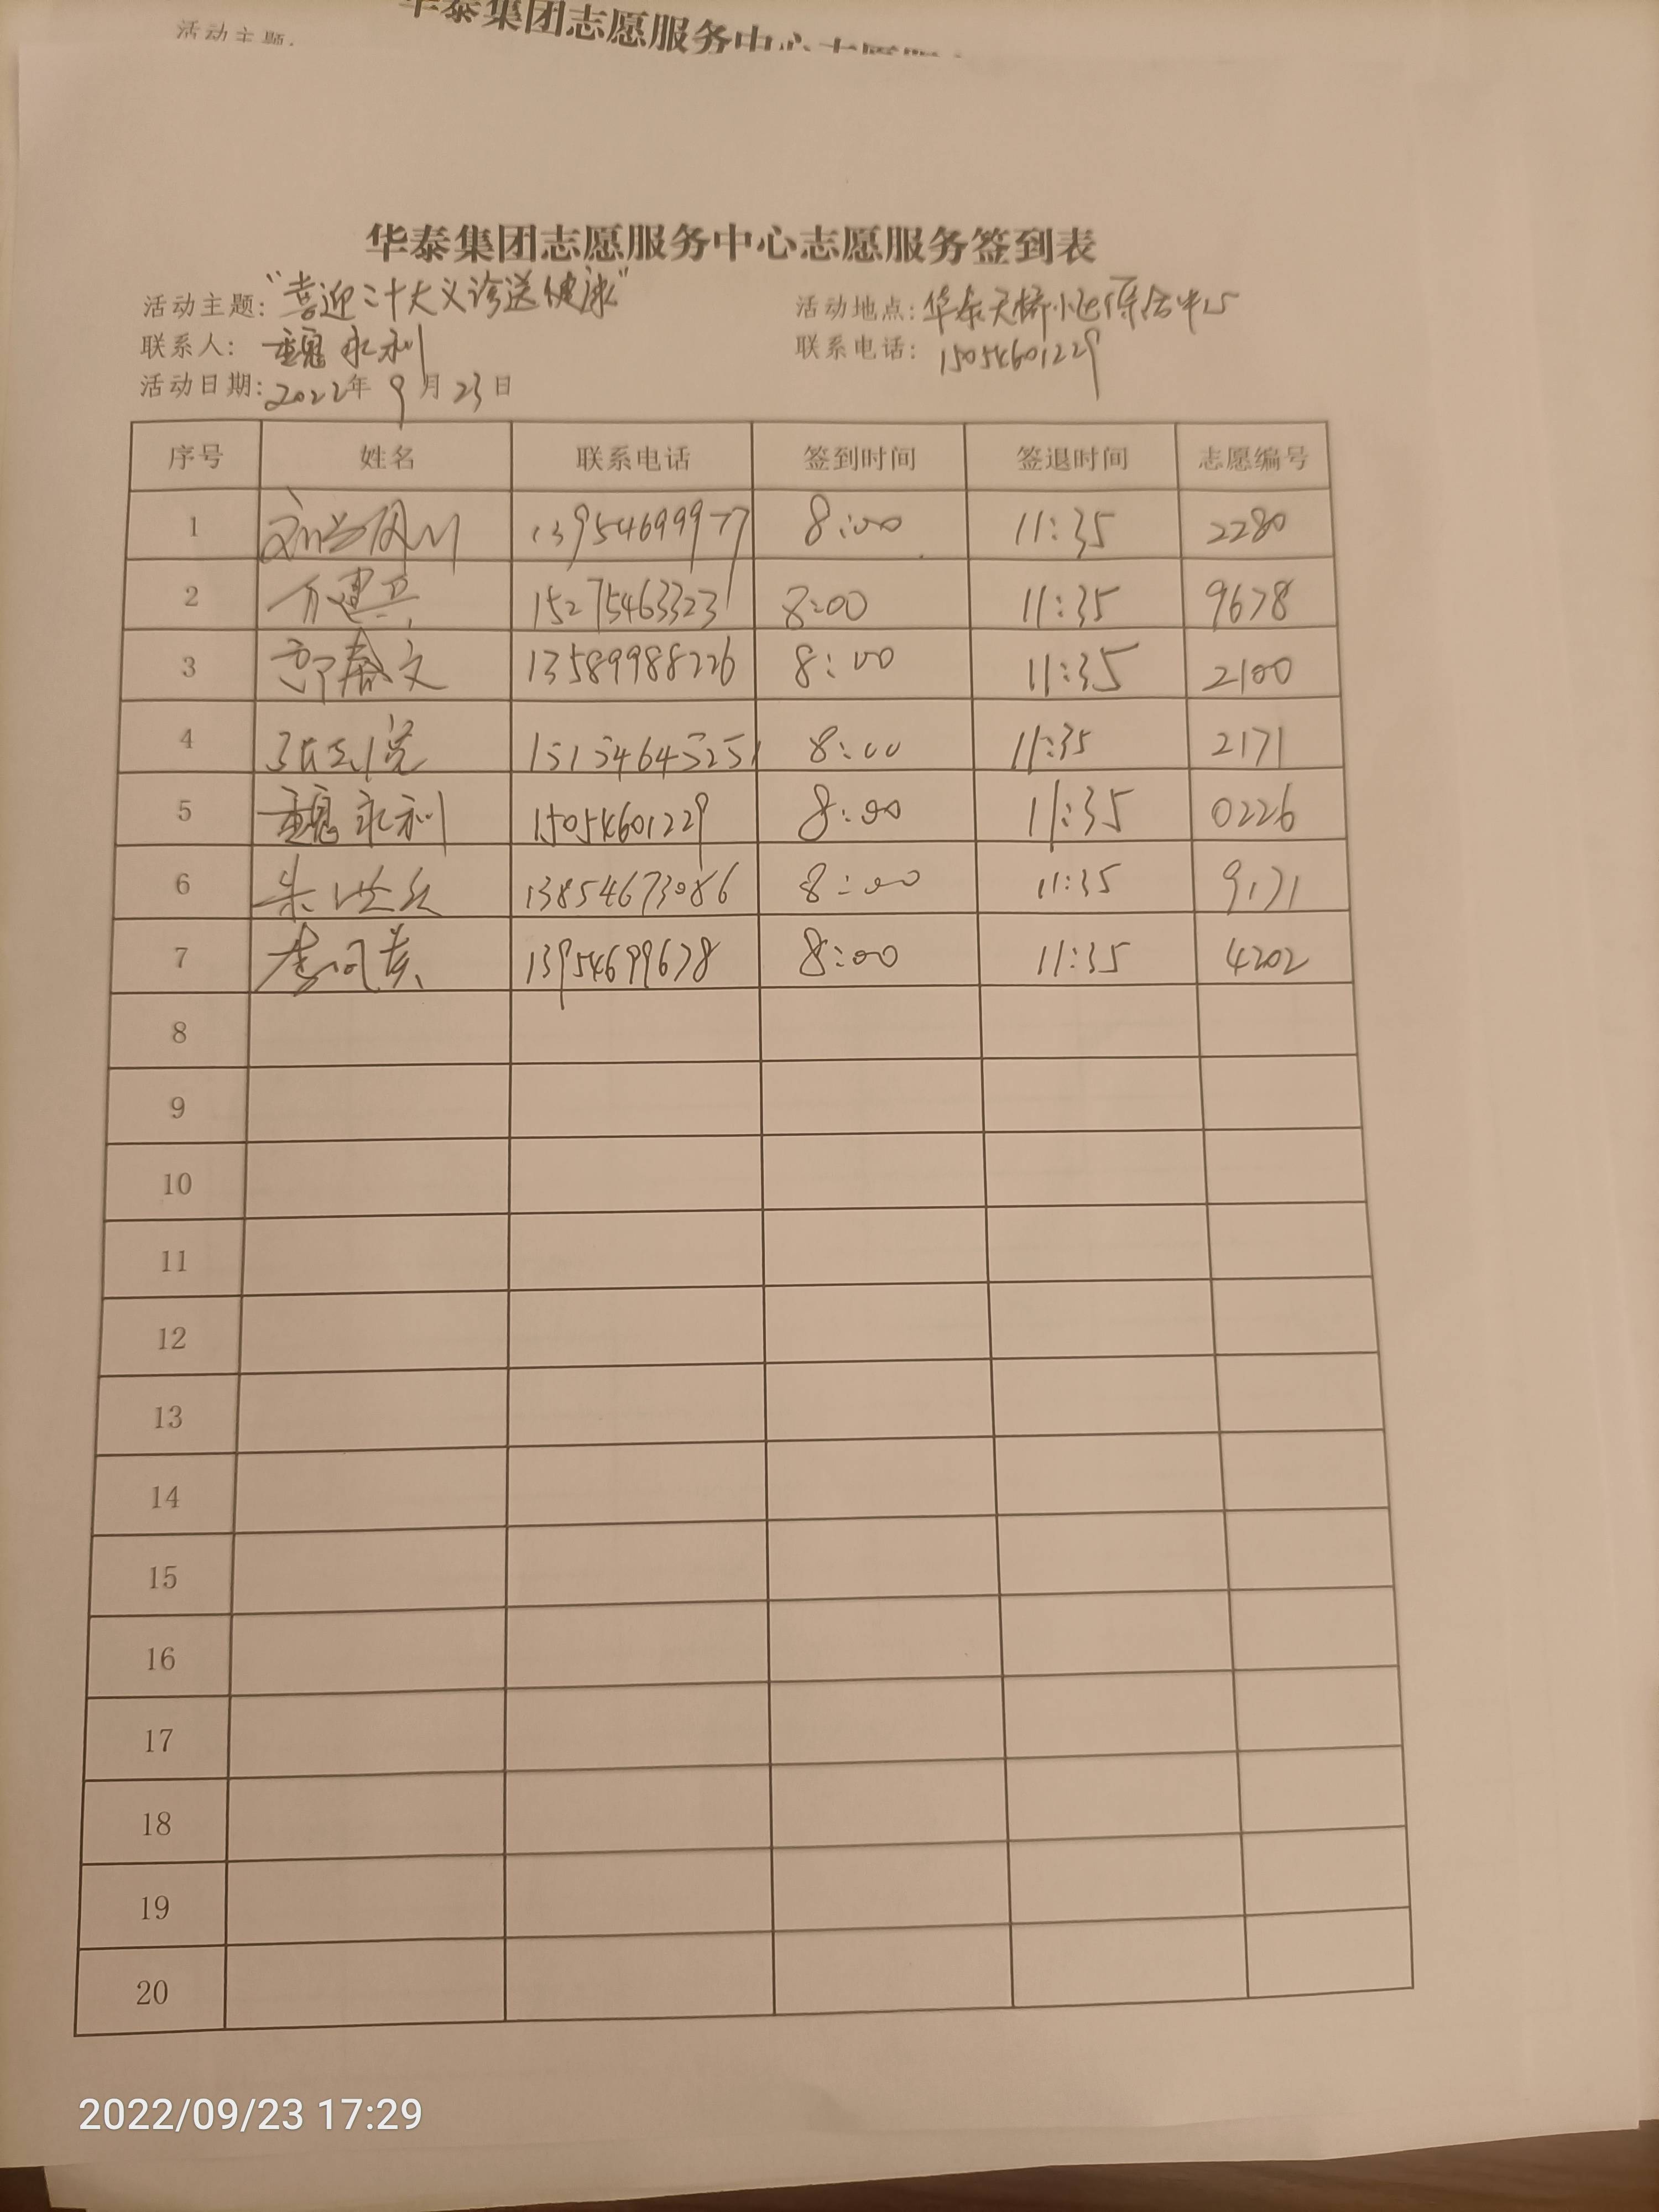 华泰集团志愿服务中心
活动主题:
华泰集团志愿服务中心志愿服务签到表
活动主题:"喜迎二十大义诊送健康" 活动地点:华泰天桥小区综合中心
联系人: 魏永利 联系电话: 15054601229
活动日期:2022年 9 月 23 日
序号 姓名 联系电话 签到时间 签退时间 志愿编号
1 13954699977 8:00 11:35 2280
2 15275463323 8:00 11:35 9678
3 郭春文 13589988226 8:00 11:35 2100
4 15154645251 8:00 11:35 2171
5 魏永利 15054601229 8:00 11:35 0226
6 13854673086 8:00 11:35 9171
7 13954699678 8:00 11:35 4202
8
9
10
11
12
13
14
15
16
17
18
19
20
2022/09/23 17:29